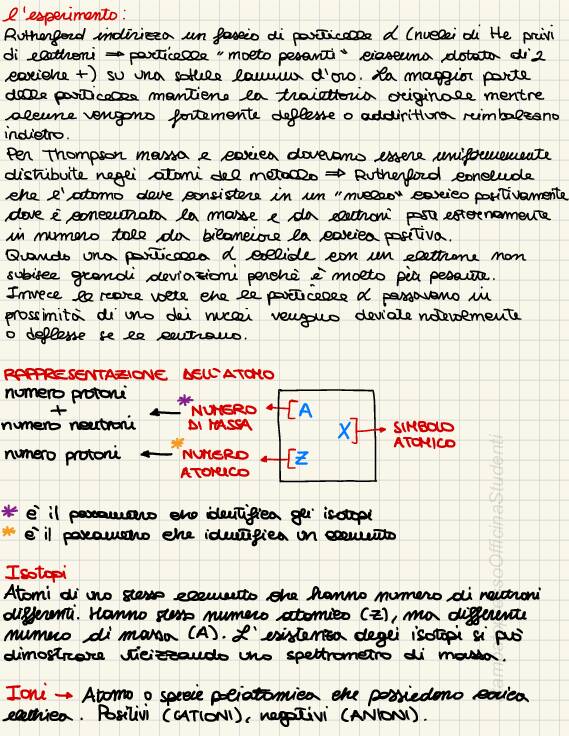 l'esperimento:
Rutherford indirizza un fascio di particelle α (nuclei di He privi
di elettroni ⇒ particelle "molto pesanti" ciascuna dotata di 2
cariche +) su una sottile lamina d'oro. La maggior parte
delle particelle mantiene la traiettoria originale mentre
alcune vengono fortemente deflesse o addirittura rimbalzano
indietro.
Per Thompson massa e carica dovevano essere uniformemente
distribuite negli atomi del metallo ⇒ Rutherford conclude
che l'atomo deve consistere in un "nucleo" carico positivamente
dove è concentrata la massa e da elettroni posti esternamente
in numero tale da bilanciare la carica positiva.
Quando una particella α collide con un elettrone non
subisce grandi deviazioni perchè è molto più pesante.
Invece le rare volte che le particelle α passavano in
prossimità di uno dei nuclei vengono deviate notevolmente
o deflesse se le centrano.
RAPPRESENTAZIONE DELL'ATOMO
numero protoni
+
numero neutroni
* NUMERO
DI MASSA
A
X
SIMBOLO
ATOMICO
numero protoni
* NUMERO
ATOMICO
Z
* è il parametro che identifica gli isotopi
* è il parametro che identifica un elemento
Isotopi
Atomi di uno stesso elemento che hanno numero di neutroni
differenti. Hanno stesso numero atomico (Z), ma differente
numero di massa (A). L'esistenza degli isotopi si può
dimostrare utilizzando uno spettrometro di massa.
Ioni → Atomo o specie poliatomica che possiedono carica
elettrica. Positivi (CATIONI), negativi (ANIONI).